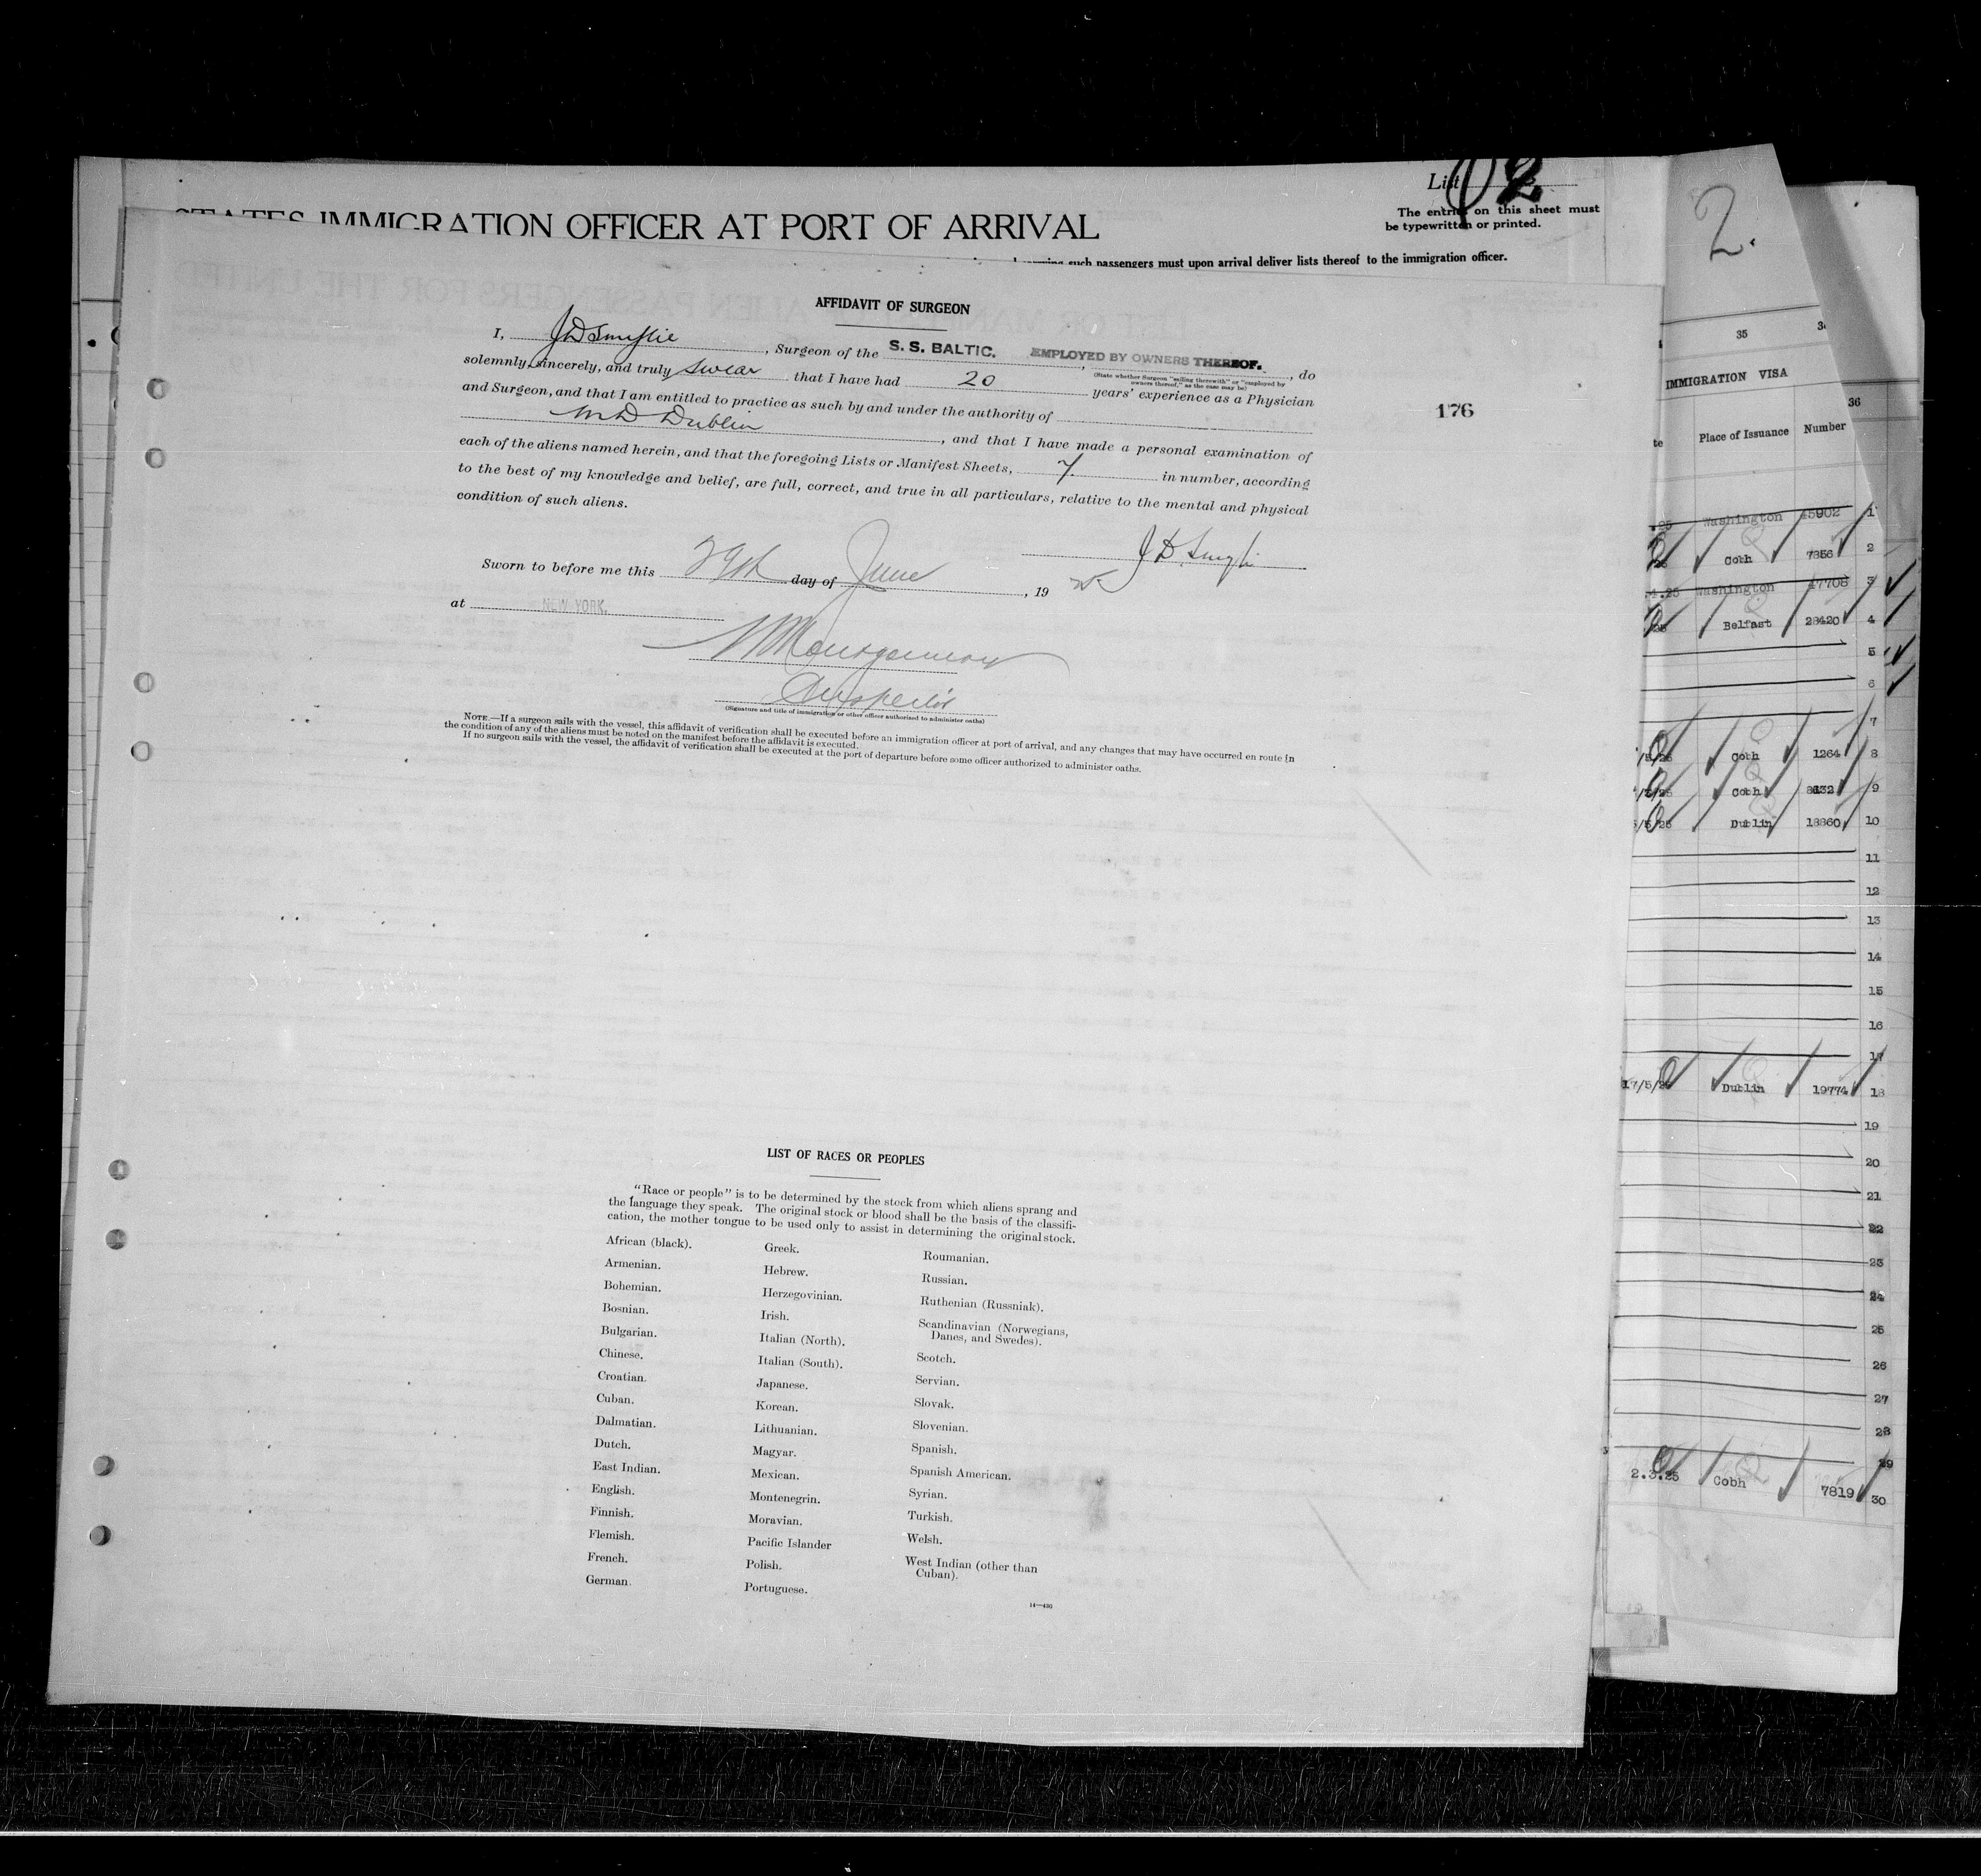 List 2
STATES IMMIGRATION OFFICER AT PORT OF ARRIVAL
The entries on this sheet must
be typewritten or printed.
such passengers must upon arrival deliver lists thereof to the immigration officer.
AFFIDAVIT OF SURGEON
I, J D , Surgeon of the S. S. BALTIC. EMPLOYED BY OWNERS THEREOF. , do
(State whether Surgeon "sailing therewith" or "employed by
owners thereof," as the case may be)
solemnly, sincerely, and truly swear that I have had 20 years' experience as a Physician
and Surgeon, and that I am entitled to practice as such by and under the authority of
M D Dublin , and that I have made a personal examination of
each of the aliens named herein, and that the foregoing Lists or Manifest Sheets, 7. in number, according
to the best of my knowledge and belief, are full, correct, and true in all particulars, relative to the mental and physical
condition of such aliens.
176
J D.
Sworn to before me this 29th day of June , 19 25
at NEW YORK.
Montgomery
Inspector
(Signature and title of immigration or other officer authorized to administer oaths)
NOTE.—If a surgeon sails with the vessel, this affidavit of verification shall be executed before an immigration officer at port of arrival, and any changes that may have occurred en route in
the condition of any of the aliens must be noted on the manifest before the affidavit is executed.
If no surgeon sails with the vessel, the affidavit of verification shall be executed at the port of departure before some officer authorized to administer oaths.
LIST OF RACES OR PEOPLES
"Race or people" is to be determined by the stock from which aliens sprang and
the language they speak. The original stock or blood shall be the basis of the classifi-
cation, the mother tongue to be used only to assist in determining the original stock.
African (black).
Armenian.
Bohemian.
Bosnian.
Bulgarian.
Chinese.
Croatian.
Cuban.
Dalmatian.
Dutch.
East Indian.
English.
Finnish.
Flemish.
French.
German.
Greek.
Hebrew.
Herzegovinian.
Irish.
Italian (North).
Italian (South).
Japanese.
Korean.
Lithuanian.
Magyar.
Mexican.
Montenegrin.
Moravian.
Pacific Islander
Polish.
Portuguese.
Roumanian.
Russian.
Ruthenian (Russniak).
Scandinavian (Norwegians,
Danes, and Swedes).
Scotch.
Servian.
Slovak.
Slovenian.
Spanish.
Spanish American.
Syrian.
Turkish.
Welsh.
West Indian (other than
Cuban).
14—430
2.
35
36
IMMIGRATION VISA
te Place of Issuance Number
.25 Washington 45902 1
Cobh 7356 2
4.25 Washington 47708 3
Belfast 28420 4
5
6
7
/5/25 Cobh 1264 8
Cobh 9
5/5/25 Dublin 18860 10
11
12
13
14
15
16
17
17/5/25 Dublin 19774 18
19
20
21
22
23
24
25
26
27
28
29
2.3.25 Cobh 7819 30